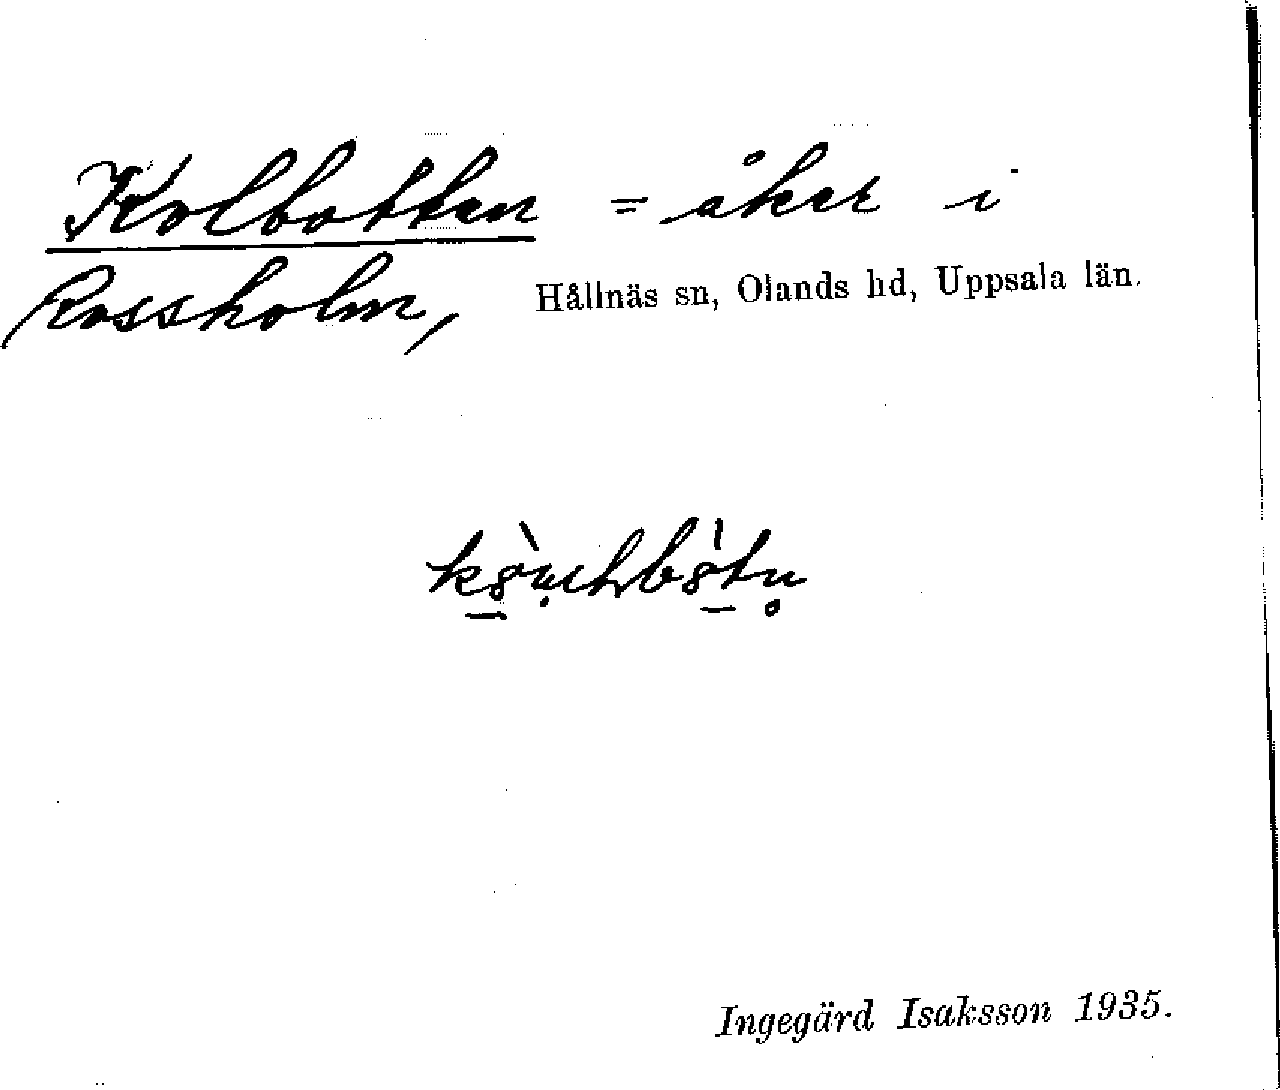 Kolbotten = åker i
Rossholm, Hållnäs sn, Olands hd, Uppsala län.
Ingegärd Isaksson 1935.